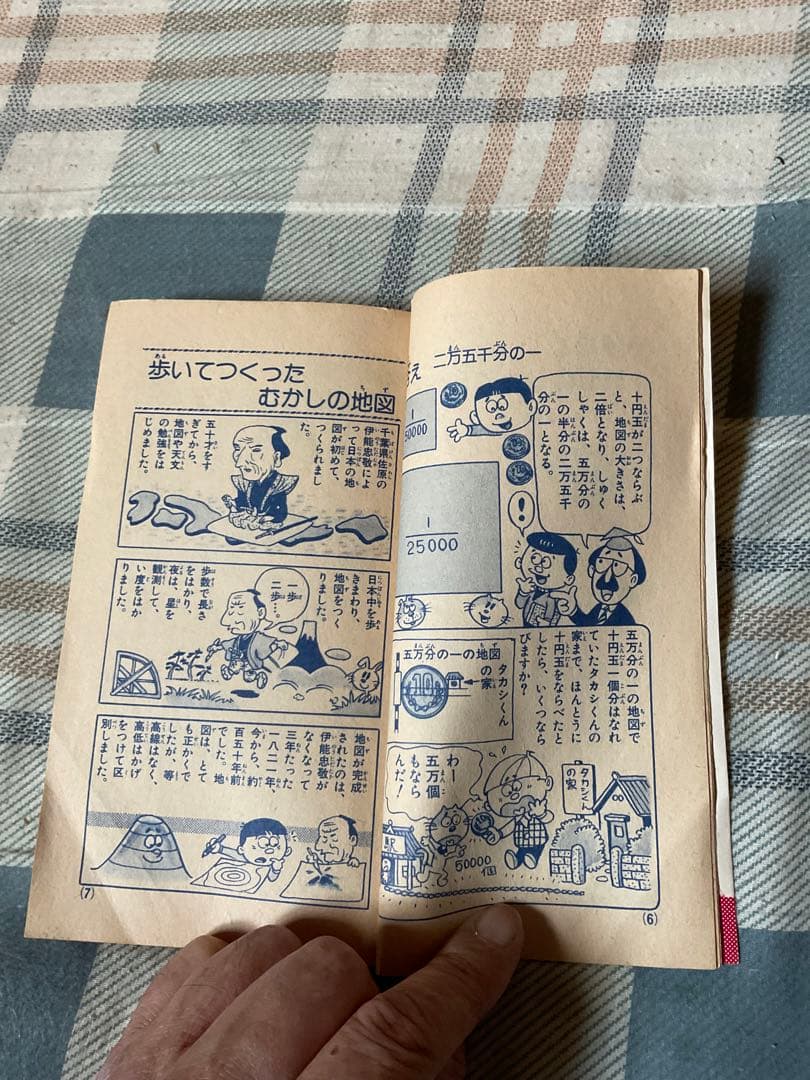 え 二万五千分の一
十円玉が二つならぶ
と、地図の大きさは、
二倍となり、しゅく
しゃくは、五万分の
一の半分の二万五千
分の一となる。
1
50000
1
25000
!
五万分の一の地図で
十円玉一個分はなれ
ていたタカシくんの
家まで、ほんとうに
十円玉をならべたと
したら、いくつなら
びますか?
五万分の一の地図
タカシくん
の家
10
タカシくん
の家
わー
五万個
もなら
んだ!
50000
個
(6)
歩いてつくった
むかしの地図
千葉県佐原の
伊能忠敬によ
って日本の地
図が初めて、
つくられまし
た。
五十才をす
ぎてから、
地図や天文
の勉強をは
じめました。
日本中を歩
きまわり、
地図をつく
りました。
一歩
二歩…。
歩数で長さ
をはかり、
夜は、星を
観測して、
い度をはか
りました。
地図が完成
されたのは、
伊能忠敬が
なくなって
三年たった
一八二一年、
今から、約
百五十年前
でした。地
図は、とて
も正かくで
したが、等
高線はなく、
高低はかげ
をつけて区
別しました。
(7)